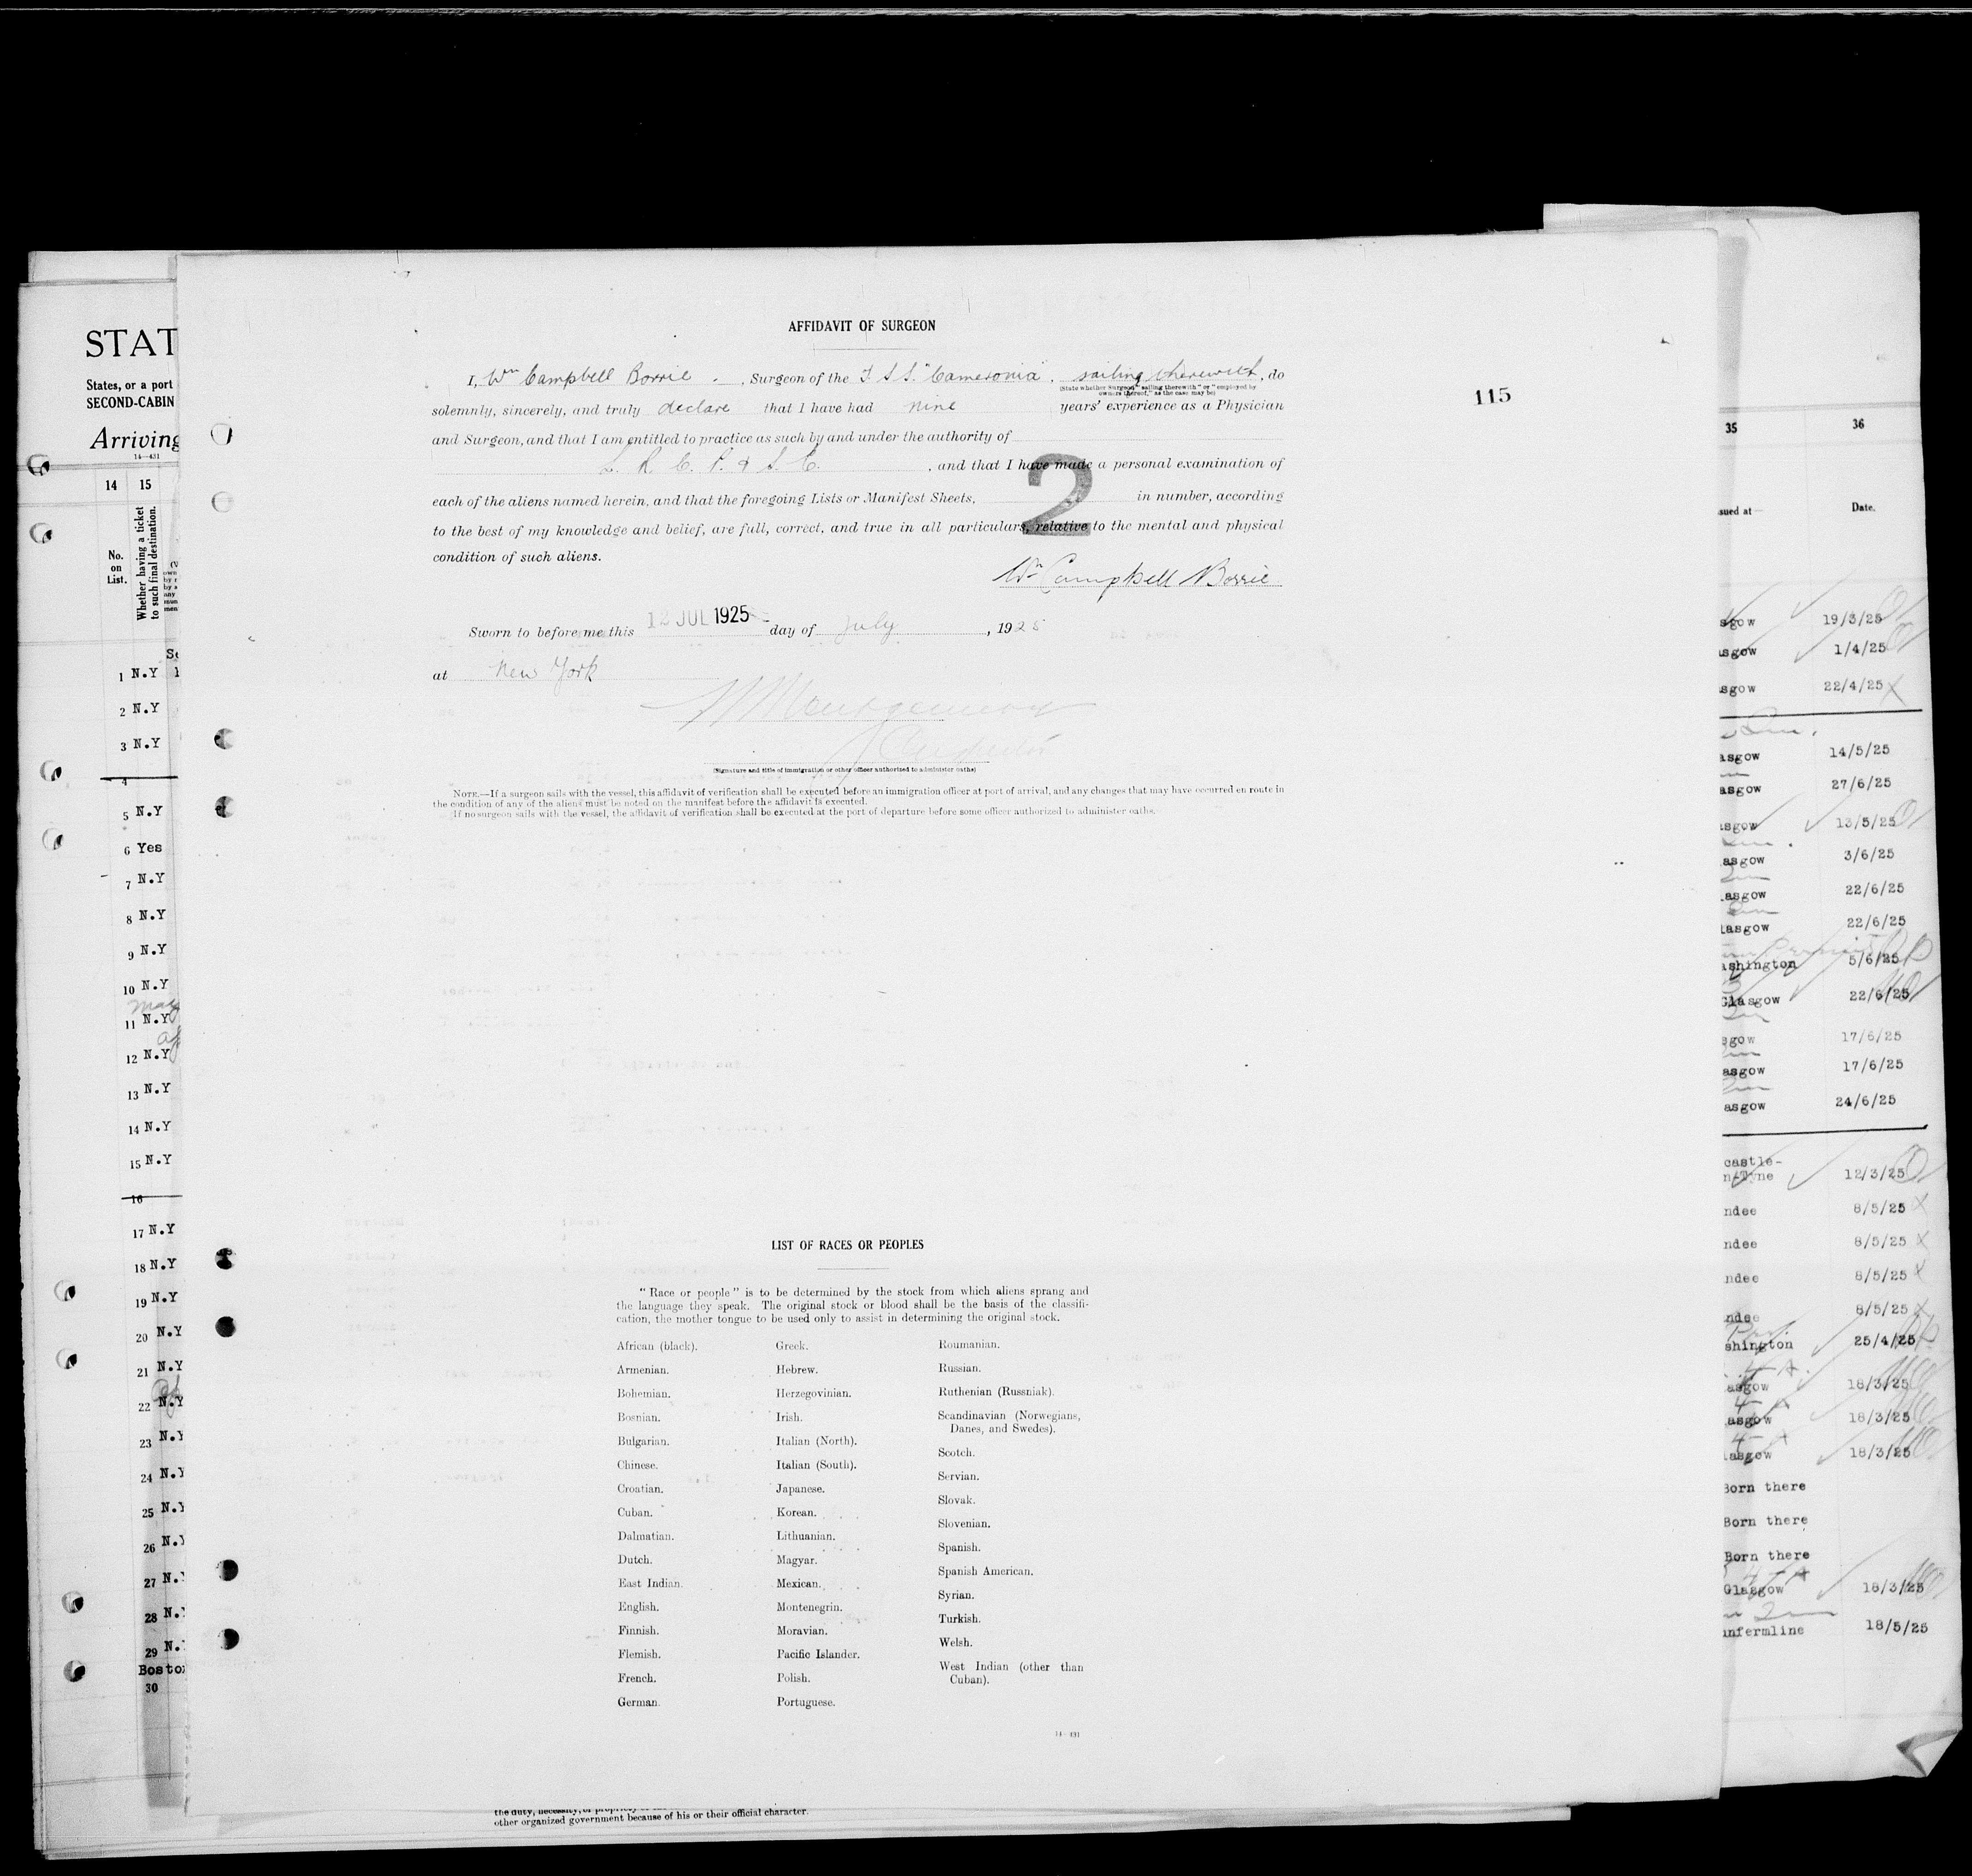 AFFIDAVIT OF SURGEON
I, Wm Campbell Borrie . , Surgeon of the T. S. S. "Cameronia", sailing therewith, do
(State whether Surgeon "sailing therewith" or "employed by
owners thereof," as the case may be)
solemnly, sincerely, and truly declare that I have had nine years' experience as a Physician
115
and Surgeon, and that I am entitled to practice as such by and under the authority of
L. R. C. P. & S. E. , and that I have made a personal examination of
each of the aliens named herein, and that the foregoing Lists or Manifest Sheets, 2 in number, according
to the best of my knowledge and belief, are full, correct, and true in all particulars, relative to the mental and physical
condition of such aliens.
Wm Campbell Borrie
Sworn to before me this 12 JUL 1925 day of July , 1925
at New York
(Signature and title of immigration or other officer authorized to administer oaths)
NOTE.—If a surgeon sails with the vessel, this affidavit of verification shall be executed before an immigration officer at port of arrival, and any changes that may have occurred en route in
the condition of any of the aliens must be noted on the manifest before the affidavit is executed.
If no surgeon sails with the vessel, the affidavit of verification shall be executed at the port of departure before some officer authorized to administer oaths.
LIST OF RACES OR PEOPLES
"Race or people" is to be determined by the stock from which aliens sprang and
the language they speak. The original stock or blood shall be the basis of the classifi-
cation, the mother tongue to be used only to assist in determining the original stock.
African (black).
Armenian.
Bohemian.
Bosnian.
Bulgarian.
Chinese.
Croatian.
Cuban.
Dalmatian.
Dutch.
East Indian.
English.
Finnish.
Flemish.
French.
German.
Greek.
Hebrew.
Herzegovinian.
Irish.
Italian (North).
Italian (South).
Japanese.
Korean.
Lithuanian.
Magyar.
Mexican.
Montenegrin.
Moravian.
Pacific Islander.
Polish.
Portuguese.
Roumanian.
Russian.
Ruthenian (Russniak).
Scandinavian (Norwegians,
Danes, and Swedes).
Scotch.
Servian.
Slovak.
Slovenian.
Spanish.
Spanish American.
Syrian.
Turkish.
Welsh.
West Indian (other than
Cuban).
14—431
STAT
States, or a port
SECOND-CABIN
Arriving
14—431
14 15
No.
on
List.
Whether having a ticket
to such final destination.
1 N.Y
2 N.Y
3 N.Y
4
5 N.Y
6 Yes
7 N.Y
8 N.Y
9 N.Y
10 N.Y
11 N.Y
12 N.Y
13 N.Y
14 N.Y
15 N.Y
16
17 N.Y
18 N.Y
19 N.Y
20 N.Y
21 N.Y
22 N.Y
23 N.Y
24 N.Y
25 N.Y
26 N.Y
27 N.
28 N.
29 N.
Bosto
30
35 36
sued at— Date.
sgow 19/3/25
asgow 1/4/25
sgow 22/4/25
asgow 14/5/25
asgow 27/6/25
asgow 13/5/25
asgow 3/6/25
lasgow 22/6/25
lasgow 22/6/25
ashington 5/6/25
Glasgow 22/6/25
sgow 17/6/25
asgow 17/6/25
asgow 24/6/25
castle-
n-Tyne 12/3/25
ndee 8/5/25
ndee 8/5/25
ndee 8/5/25
ndee 8/5/25
shington 25/4/25
asgow 18/3/25
asgow 18/3/25
lasgow 18/3/25
Born there
Born there
Born there
Glasgow 18/3/25
unfermline 18/5/25
other organized government because of his or their official character.